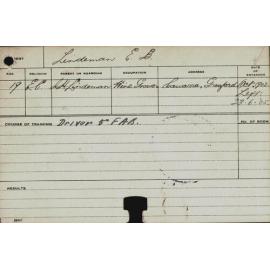 Lindeman E. B.
AGE RELIGION PARENT OR GUARDIAN OCCUPATION ADDRESS DATE OF ENTRANCE
19 C.E. Lindeman Wine Grower Cawarra, Gresford
Left
COURSE OF TRAINING Driver 5 F.A.B. NO. OF ROOM
RESULTS